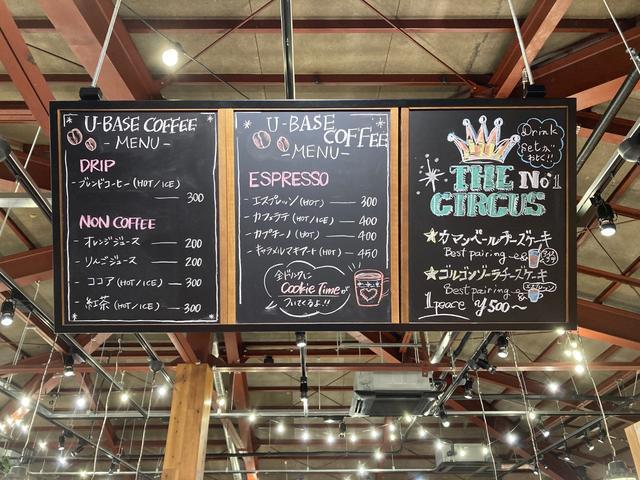 U-BASE COFFEE
-MENU-
DRIP
- ブレンドコーヒー (HOT/ICE)
300
NON COFFEE
- オレンジジュース — 200
- りんごジュース — 200
- ココア (HOT/ICE) — 300
- 紅茶 (HOT/ICE) — 300
U-BASE
COFFEE
-MENU-
ESPRESSO
- エスプレッソ (HOT) — 300
- カフェラテ (HOT/ICE) — 400
- カプチーノ (HOT) — 400
- キャラメルマキアート (HOT) — 450
全ドリンクに
Cookie Timeが
ついてくるよ!!
Drink
setが
おとく!!
THE No.1
CIRCUS
カマンベールチーズケーキ
Best pairing
ゴルゴンゾーラチーズケーキ
Best pairing
1peace ¥500~